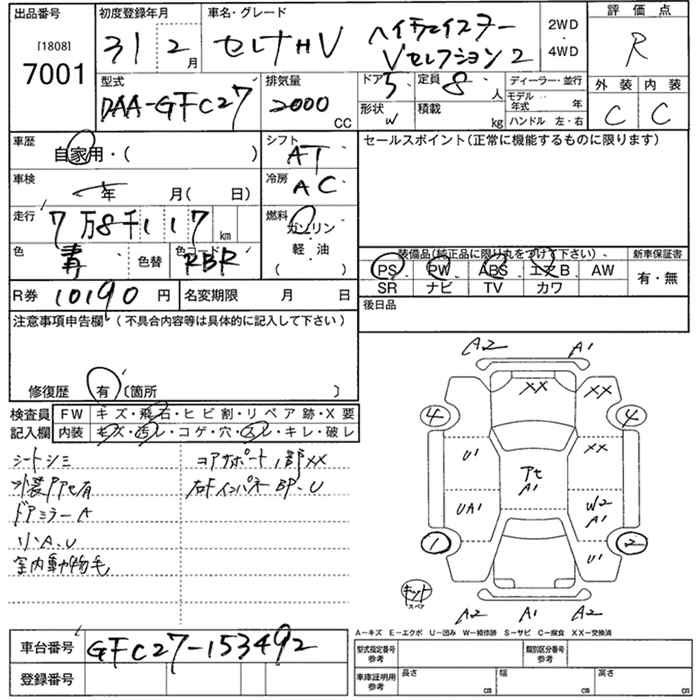 出品番号 初度登録年月 車名・グレード 2WD・4WD 評価点
[1808] 7001 31 2月 セレナHV ハイウェイスター Vセレクション2 R
型式 排気量 ドア 定員 ディーラー・並行 外装 内装
DAA-GFC27 2000 CC 5 8人 モデル年式 年 C C
形状 W 積載 kg ハンドル 左・右
車歴 自家用・( ) シフト AT セールスポイント(正常に機能するものに限ります)
車検 年 月( 日) 冷房 AC
走行 7万8千117 km 燃料 ガソリン
色 青 色替 色コード RBR 軽・油 ( )
装備品(純正品に限り丸をつけて下さい) 新車保証書
PS PW ABS エアB AW 有・無
SR ナビ TV カワ
R券 10190円 名変期限 月 日 後日品
注意事項申告欄(不具合内容等は具体的に記入して下さい)
修復歴 有 〔箇所 〕
検査員 FW キズ・飛石・ヒビ割・リペア跡・X要
記入欄 内装 キズ・汚レ・コゲ・穴・スレ・キレ・破レ
シートシミ コアサポート 1部XX
外装アアセ有 BP.U
ドアミラーA
リンA.U
室内動物毛
A2 A1
XX XX
4 4
U1 XX
アセ A1
UA1 W2 A1
1 2
U1
キット スペア
A2 A1 A2
A－キズ E－エクボ U－凹み W－補修跡 S－サビ C－腐食 XX－交換済
車台番号 GFC27-153492 型式指定番号 参考 類別区分番号 参考
登録番号 車庫証明用 参考 長さ cm 幅 cm 高さ cm